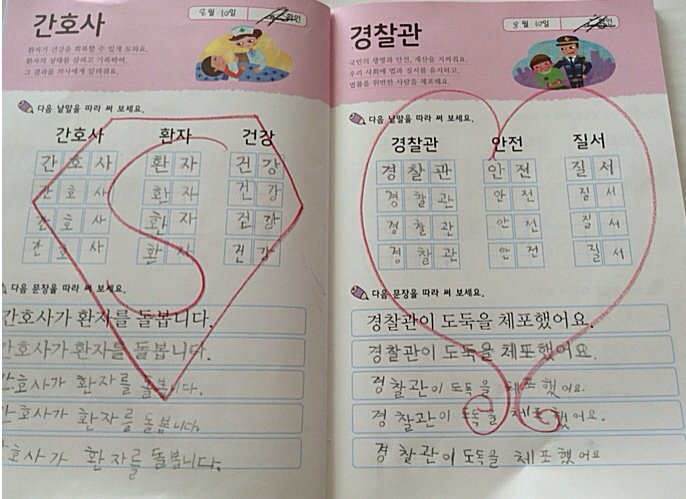 간호사
8월 10일
확인
환자가 건강을 회복할 수 있게 도와요.
환자의 상태를 살피고 기록하여,
그 결과를 의사에게 알려줘요.
다음 낱말을 따라 써 보세요.
간호사 환자 건강
간호사 환자 건강
간호사 환자 건강
간호사 환자 건강
간호사 환자 건강
S
다음 문장을 따라 써 보세요.
간호사가 환자를 돌봅니다.
간호사가 환자를 돌봅니다.
간호사가 환자를 돌봅니다.
간호사가 환자를 돌봅니다.
간호사가 환자를 돌봅니다.
경찰관
8월 10일
확인
국민의 생명과 안전, 재산을 지켜줘요.
우리 사회에 법과 질서를 유지하고,
법률을 위반한 사람을 체포해요.
다음 낱말을 따라 써 보세요.
경찰관 안전 질서
경찰관 안전 질서
경찰관 안전 질서
경찰관 안전 질서
경찰관 안전 질서
다음 문장을 따라 써 보세요.
경찰관이 도둑을 체포했어요.
경찰관이 도둑을 체포했어요.
경찰관이 도둑을 체포했어요.
경찰관이 도둑을 체포했어요.
경찰관이 도둑을 체포했어요